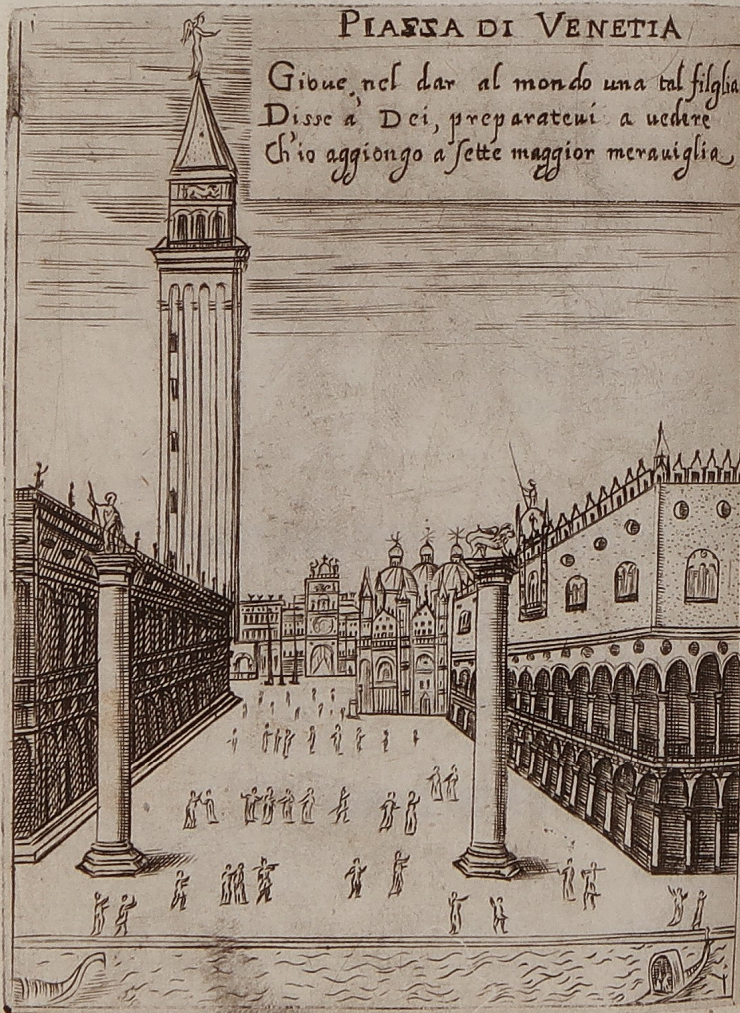 PIASSA DI VENETIA
Gioue nel dar al mondo una tal filglia
Disse a' Dei, preparateui a uedere
Ch'io aggiongo a sette maggior merauiglia